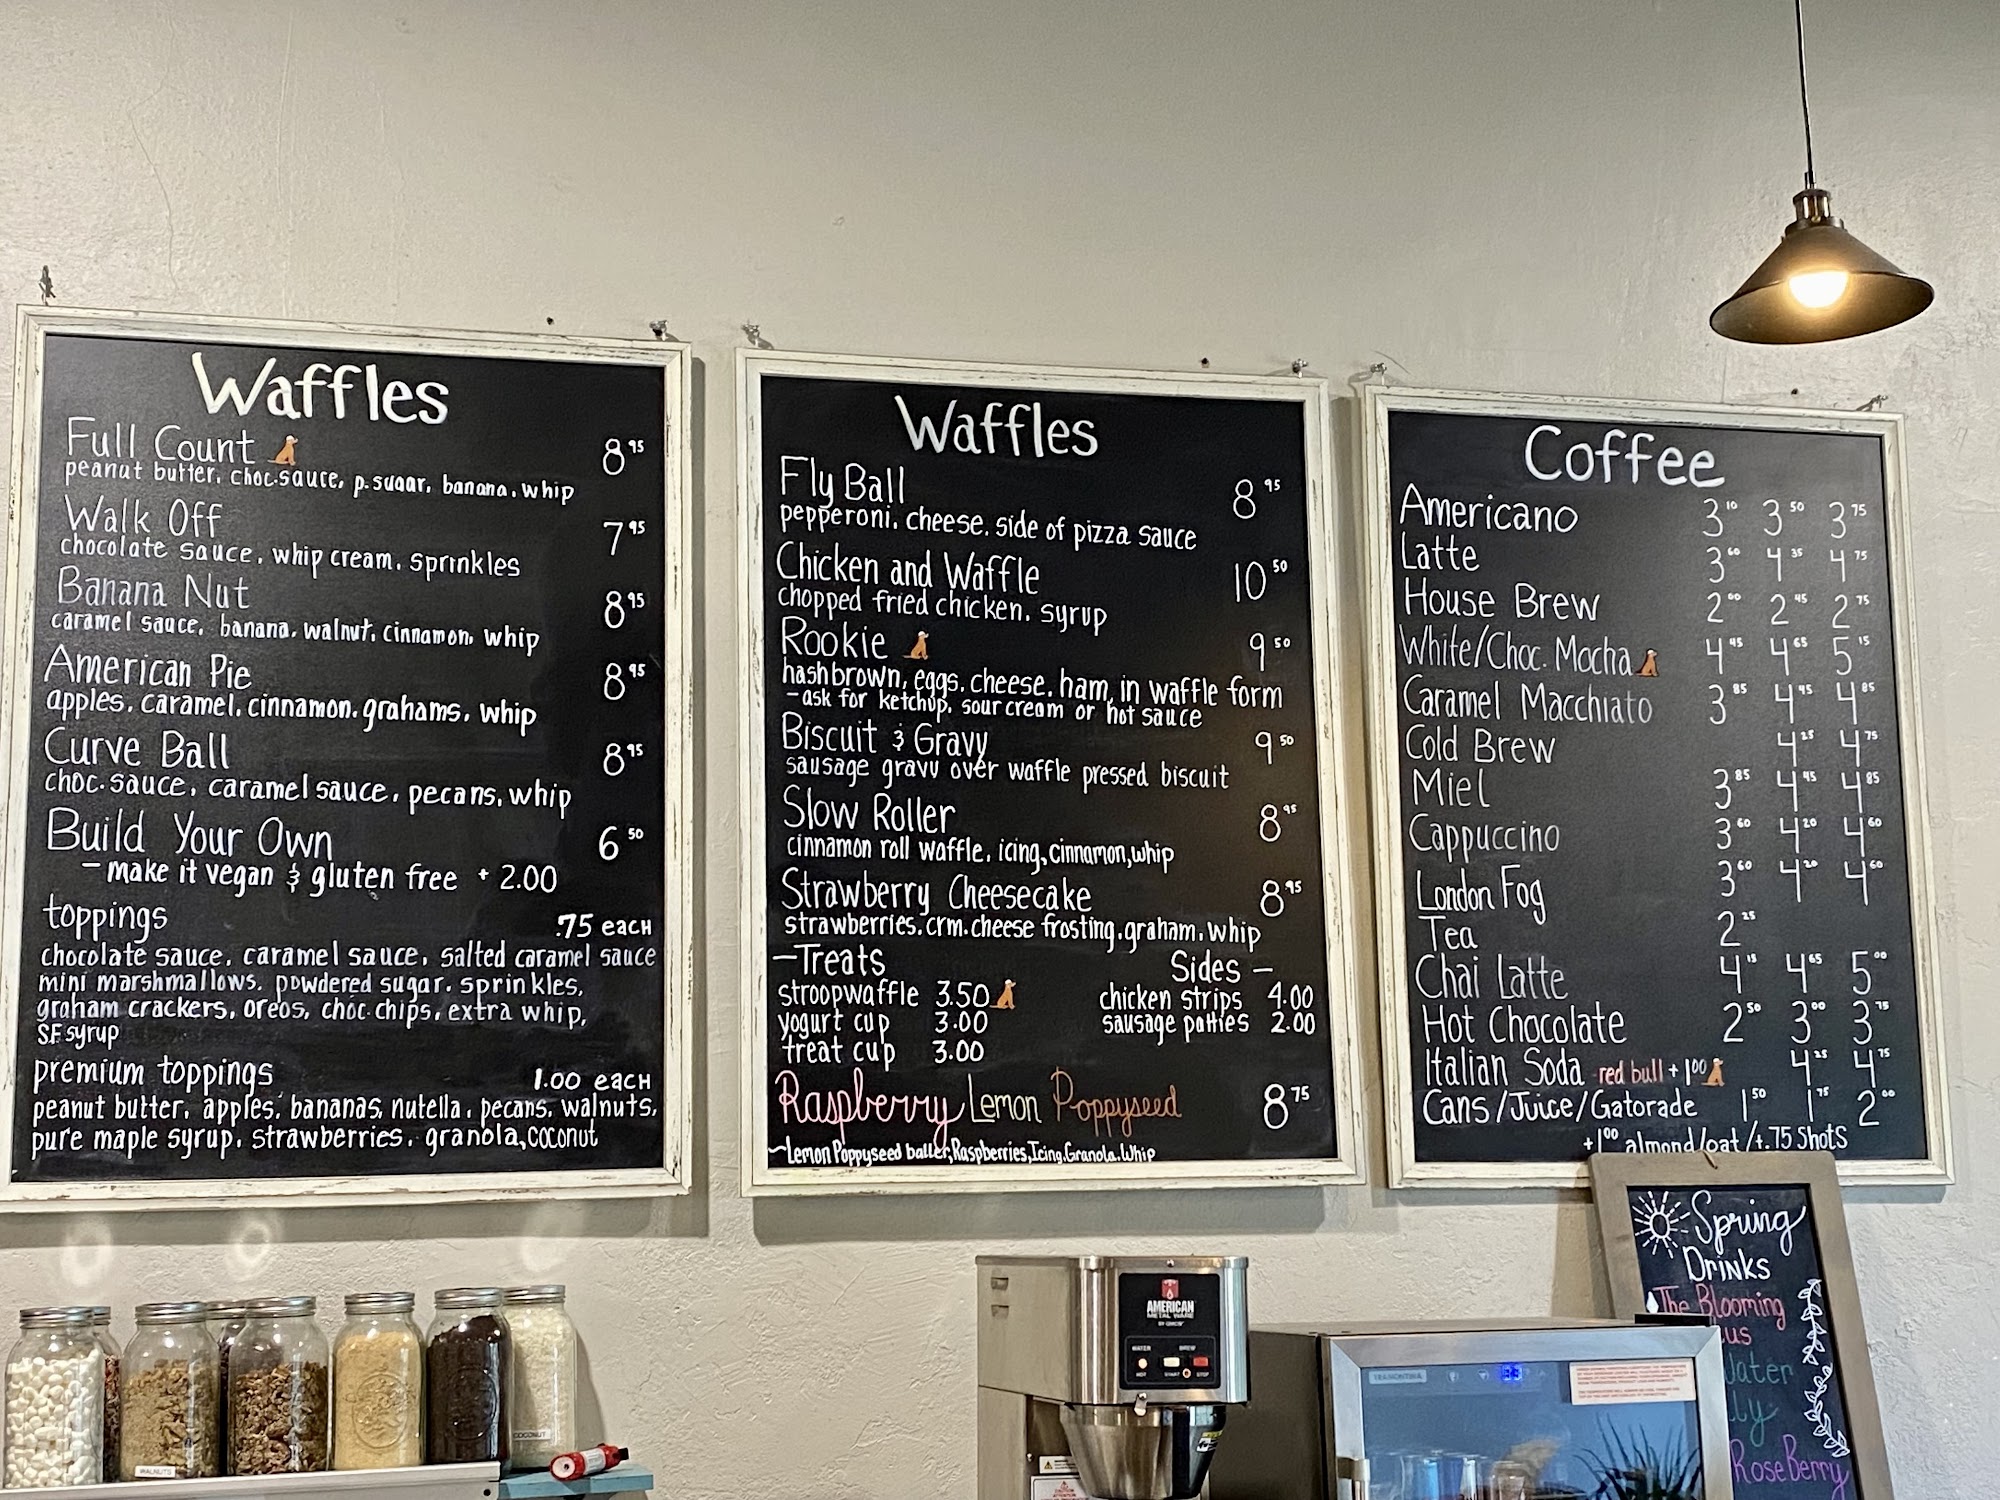 Waffles
Full Count 8.95
peanut butter, choc. sauce, p. sugar, banana, whip
Walk Off 7.95
chocolate sauce, whip cream, sprinkles
Banana Nut 8.95
caramel sauce, banana, walnut, cinnamon, whip
American Pie 8.95
apples, caramel, cinnamon, grahams, whip
Curve Ball 8.95
choc. sauce, caramel sauce, pecans, whip
Build Your Own 6.50
- make it vegan & gluten free + 2.00
toppings .75 each
chocolate sauce, caramel sauce, salted caramel sauce
mini marshmallows, powdered sugar, sprinkles,
graham crackers, oreos, choc. chips, extra whip,
S.F. syrup
premium toppings 1.00 each
peanut butter, apples, bananas, nutella, pecans, walnuts,
pure maple syrup, strawberries, granola, coconut
Waffles
Fly Ball 8.95
pepperoni, cheese, side of pizza sauce
Chicken and Waffle 10.50
chopped fried chicken, syrup
Rookie 9.50
hashbrown, eggs, cheese, ham, in waffle form
- ask for ketchup, sour cream or hot sauce
Biscuit & Gravy 9.50
sausage gravy over waffle pressed biscuit
Slow Roller 8.95
cinnamon roll waffle, icing, cinnamon, whip
Strawberry Cheesecake 8.95
strawberries, crm. cheese frosting, graham, whip
- Treats Sides -
stroopwaffle 3.50 chicken strips 4.00
yogurt cup 3.00 sausage patties 2.00
treat cup 3.00
Raspberry Lemon Poppyseed 8.75
~Lemon Poppyseed batter, Raspberries, Icing, Granola, Whip
Coffee
Americano 3.10 3.50 3.75
Latte 3.60 4.35 4.75
House Brew 2.00 2.45 2.75
White/Choc. Mocha 4.45 4.65 5.15
Caramel Macchiato 3.85 4.45 4.85
Cold Brew 4.25 4.75
Miel 3.85 4.45 4.85
Cappuccino 3.60 4.20 4.60
London Fog 3.60 4.20 4.60
Tea 2.25
Chai Latte 4.15 4.65 5.00
Hot Chocolate 2.50 3.00 3.75
Italian Soda red bull + 1.00 4.25 4.75
Cans/Juice/Gatorade 1.50 1.75 2.00
+1.00 almond/oat/+.75 Shots
Spring
Drinks
The Blooming
Water
RoseBerry
AMERICAN
METAL WARE
WATER BREW
HOT START STOP
TRAMONTINA
WALNUTS
COCONUT